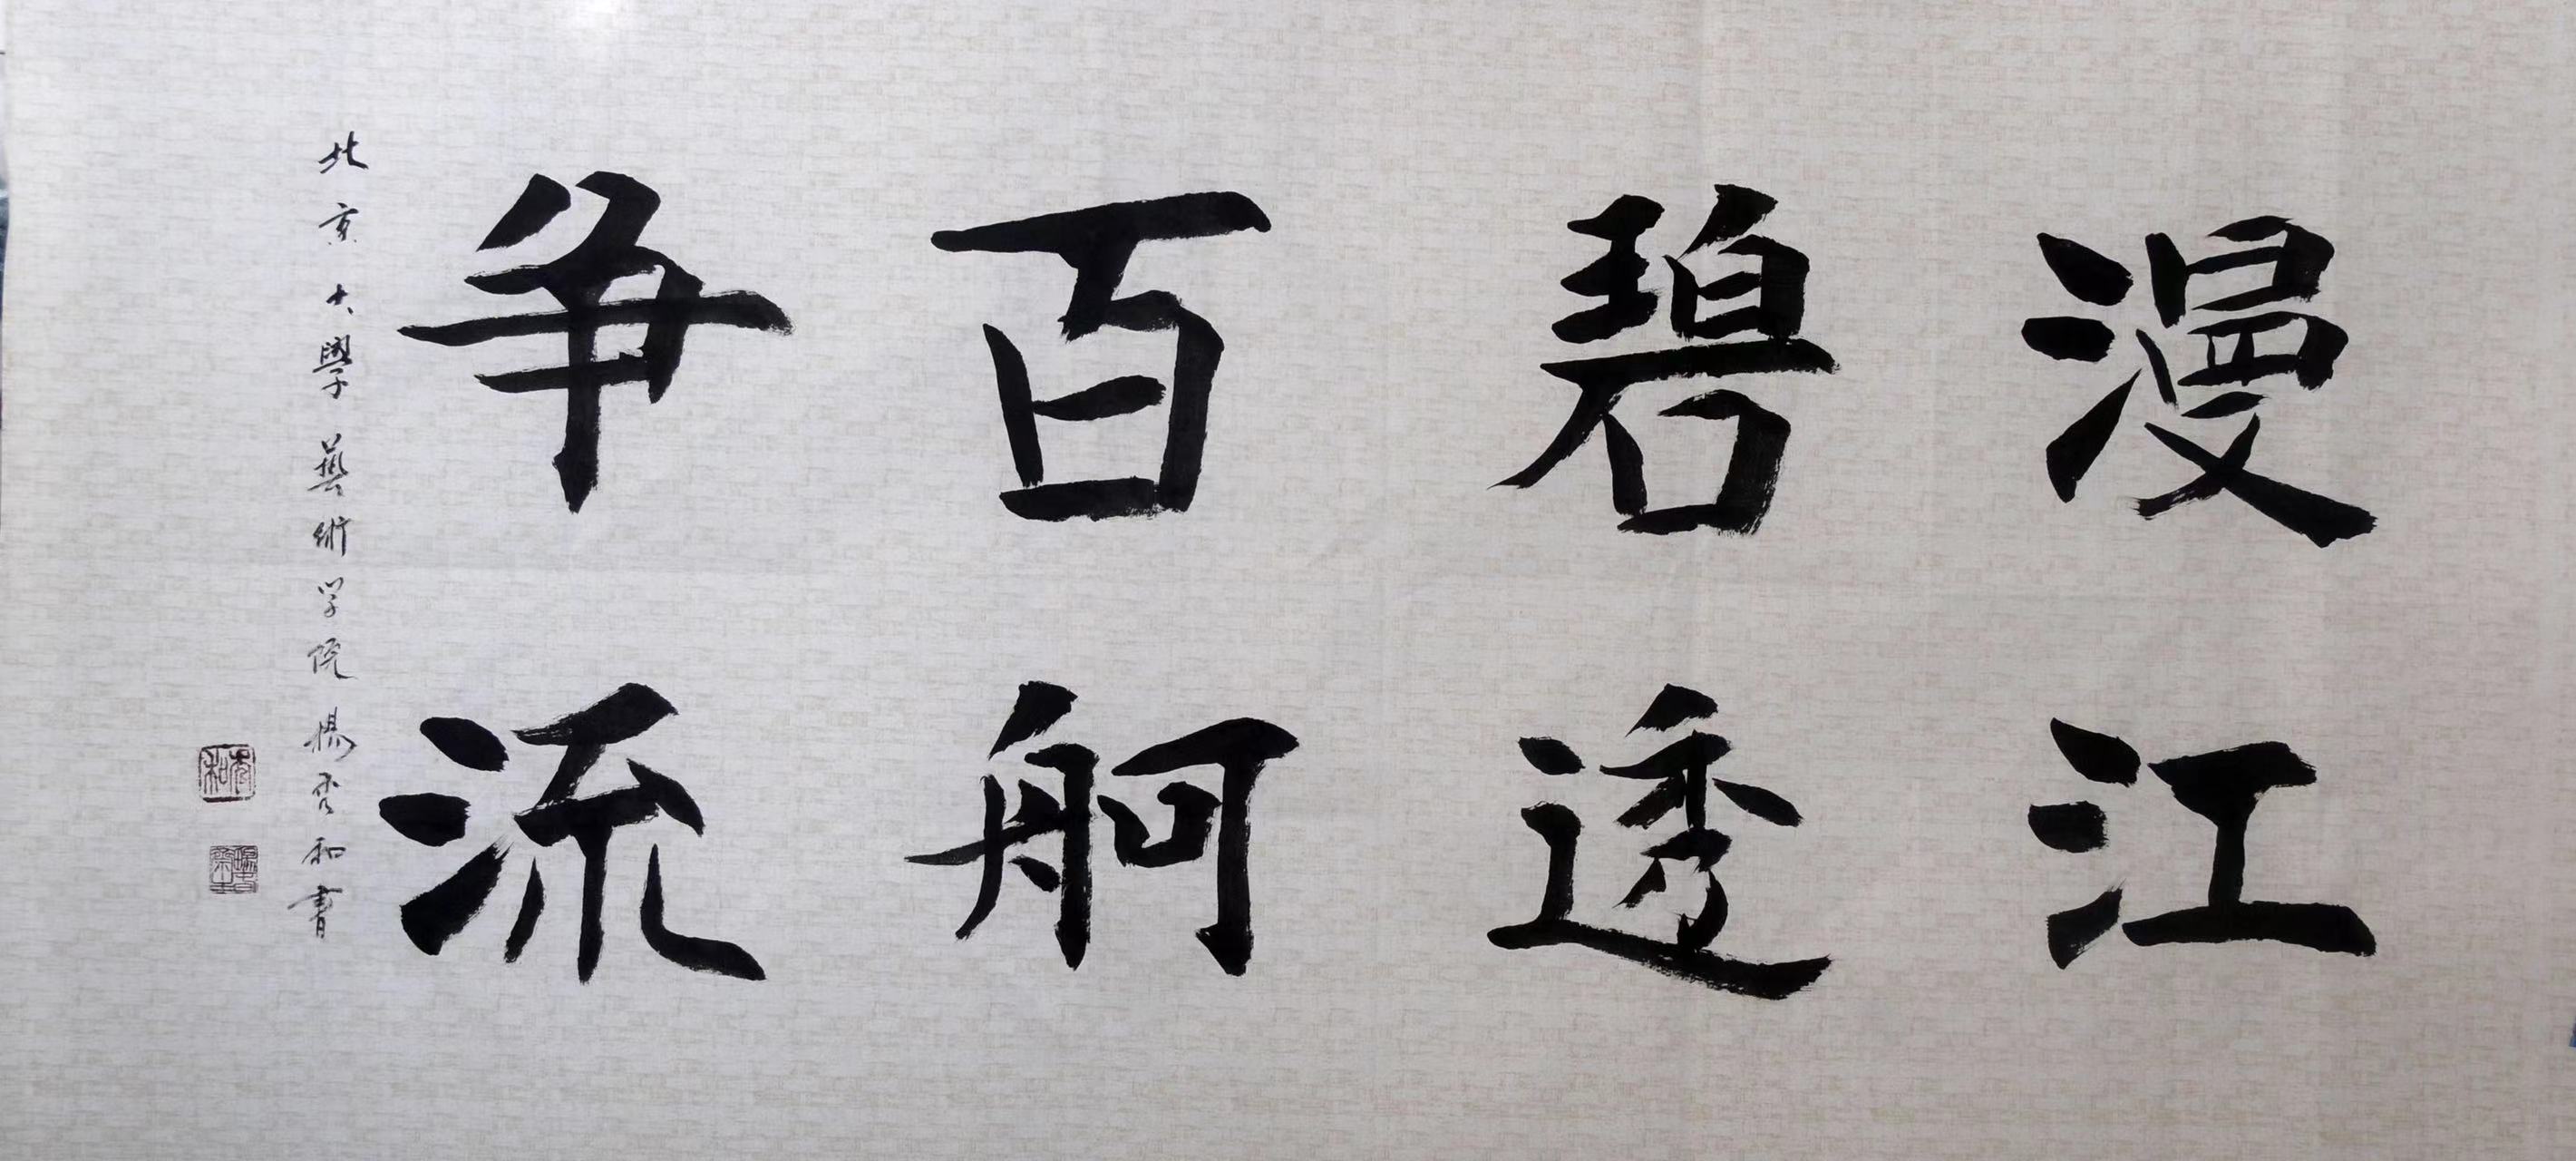 漫江
碧透
百舸
争流
北京大學藝術学院楊秀和書
秀和